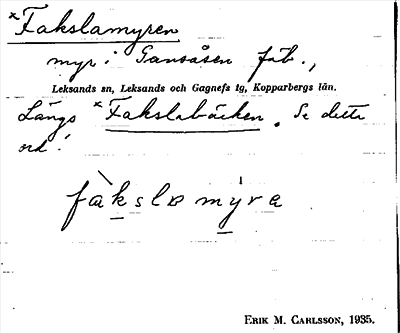 ×Fakslamyren
myr i Gansåsen fäb.,
Leksands sn, Leksands och Gagnefs tg, Kopparbergs län.
Längs ×Fakslabäcken. Se detta
ord!
fàkslɒ mýra
ERIK M. CARLSSON, 1935.